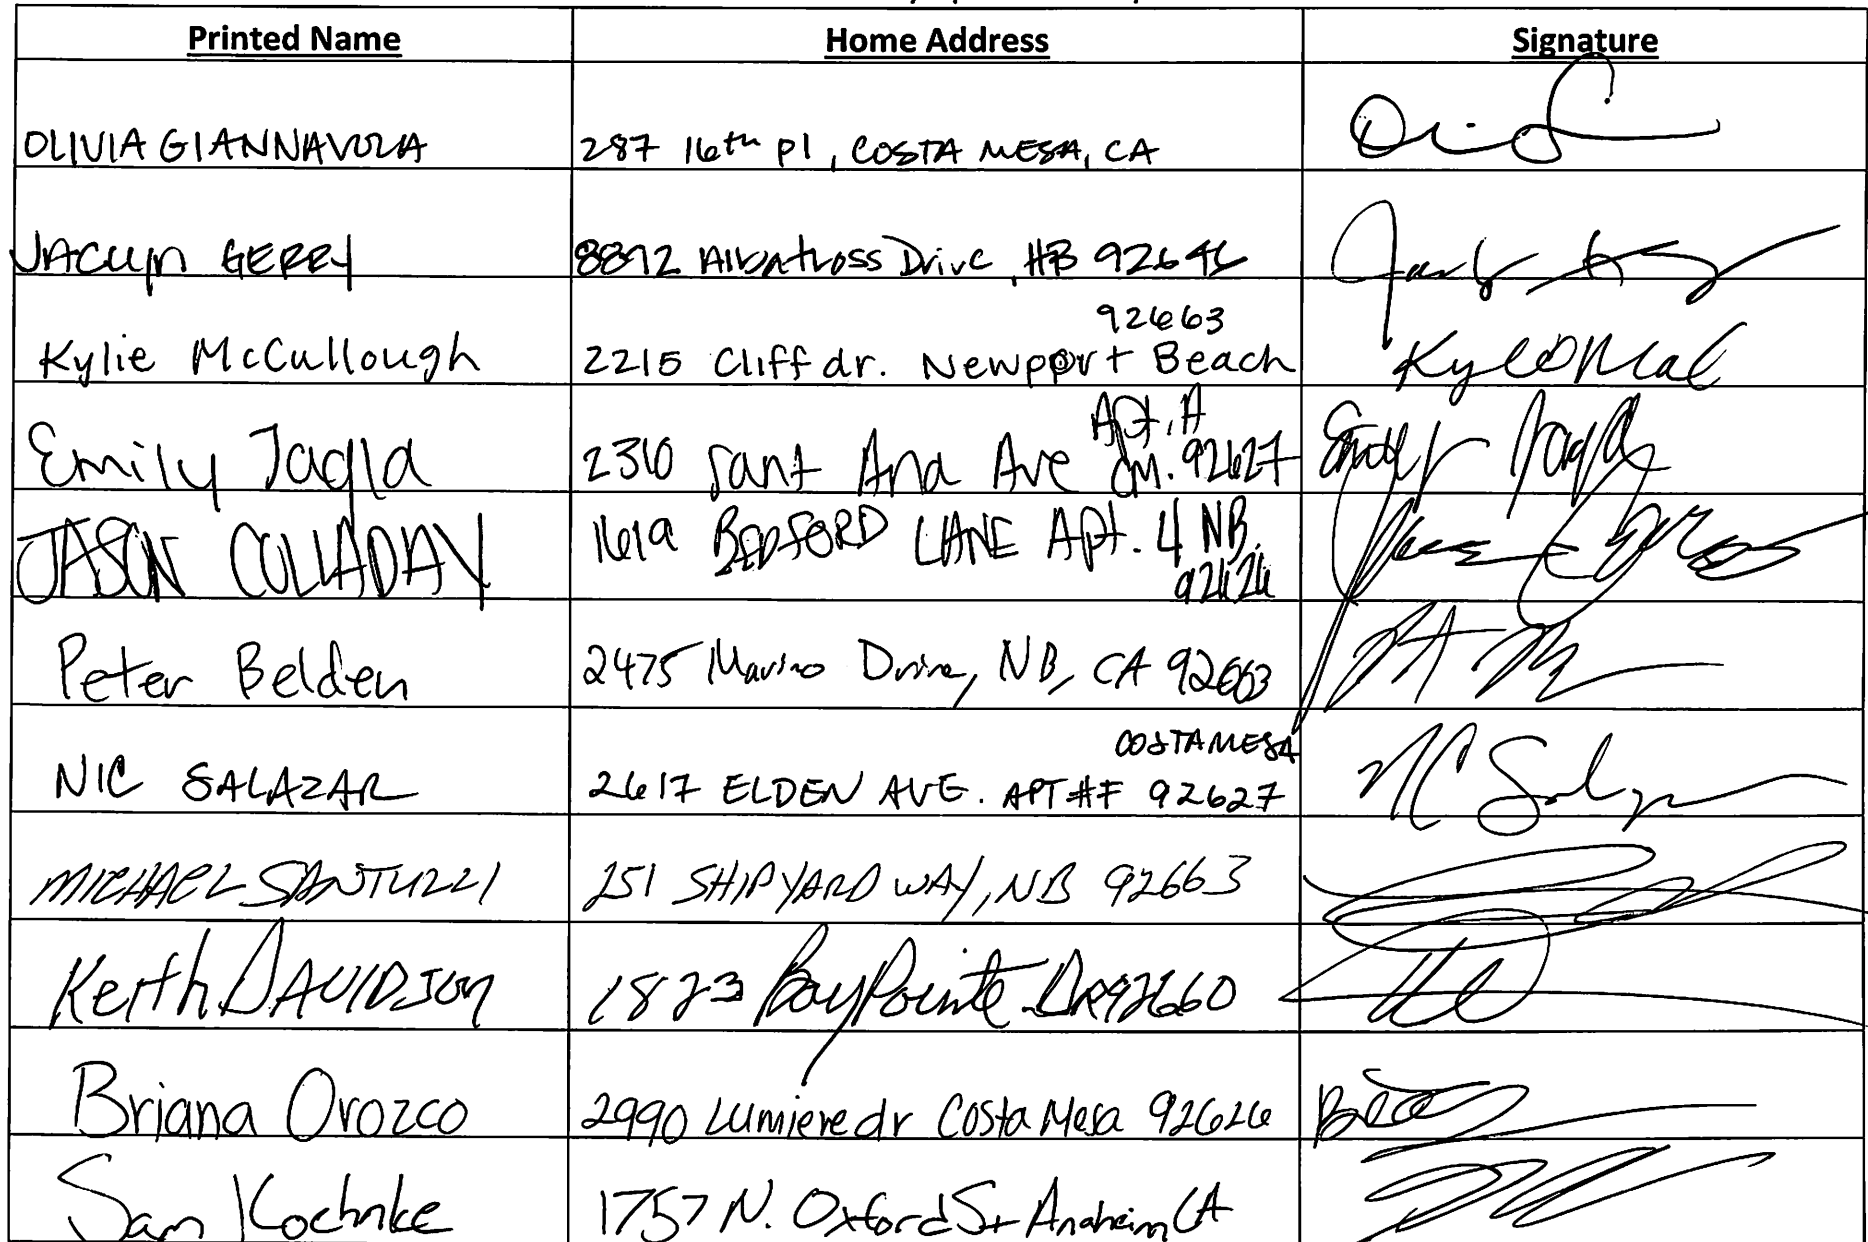 Printed Name Home Address Signature
OLIVIA GIANNAVOLA 287 16th pl, COSTA MESA, CA
JACLYN GERRY 8892 Albatross Drive, HB 92646
92663
Kylie McCullough 2215 Cliff dr. Newport Beach
Apt. A
Emily Jagla 2310 Sant Ana Ave CM. 92627
JASON COLLADAY 1619 BEDFORD LANE Apt. 4 NB.
92626
Peter Belden 2475 Marino Drive, NB, CA 92663
COSTA MESA
NIC SALAZAR 2617 ELDEN AVE. APT #F 92627
MICHAEL SANTUZZI 251 SHIPYARD WAY, NB 92663
Keith DAVIDSON 1823 Bay Pointe Dr 92660
Briana Orozco 2990 Lumiere dr Costa Mesa 92626
Sam Kochnke 1757 N. Oxford St Anaheim CA